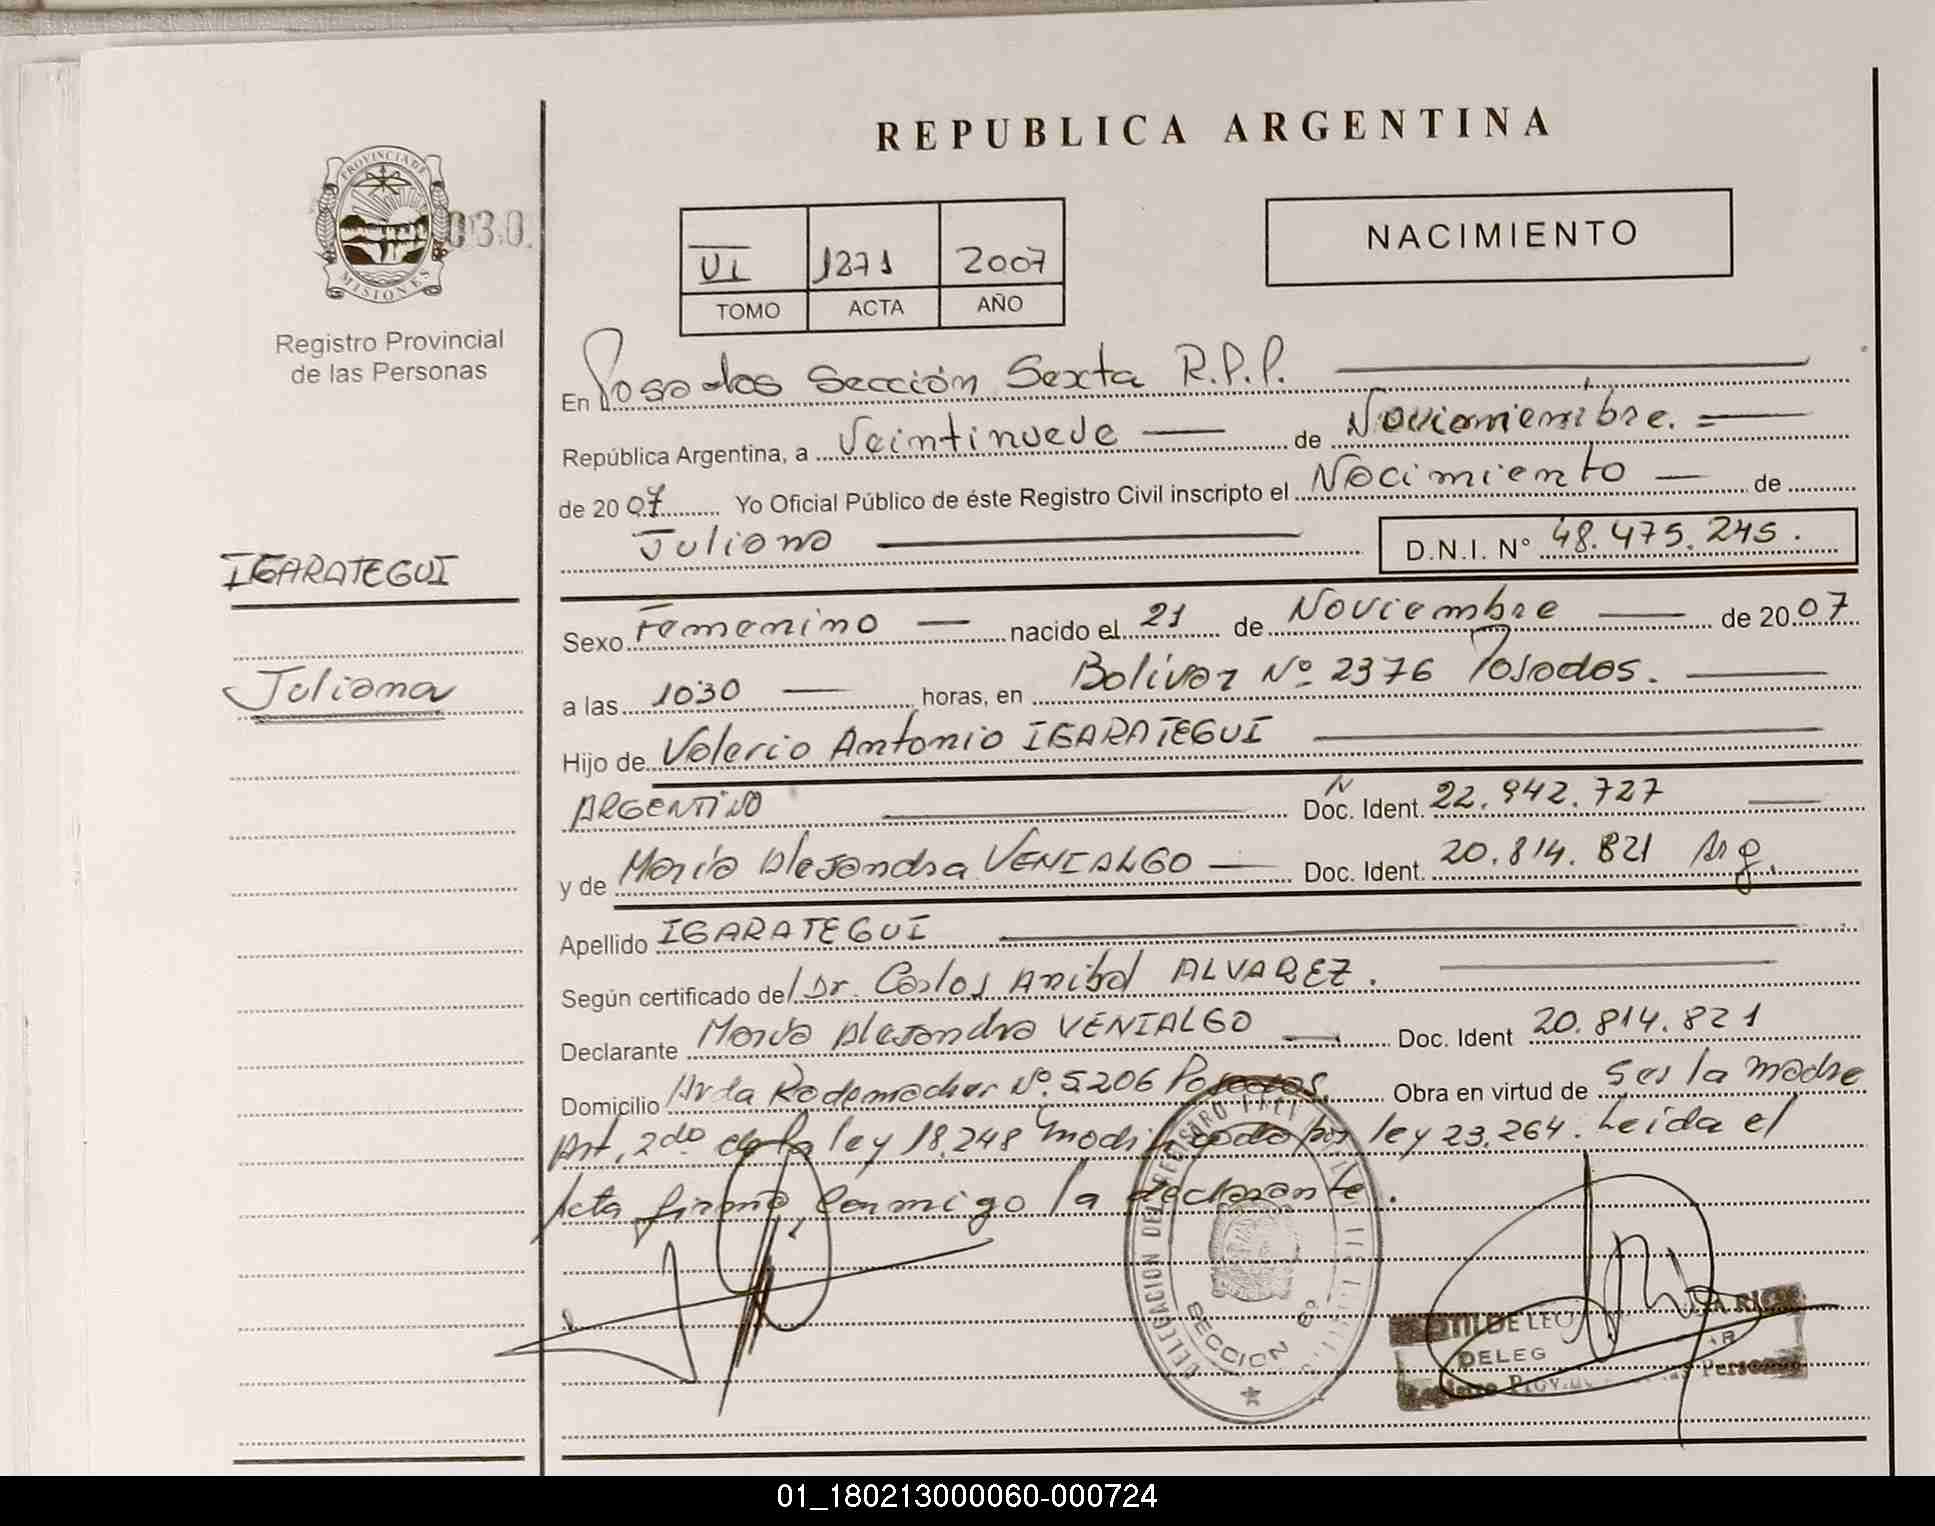 REPUBLICA ARGENTINA
PROVINCIA DE MISIONES
030.
Registro Provincial
de las Personas
VI 1271 2007
TOMO ACTA AÑO
NACIMIENTO
En Posadas Sección Sexta R.P.P.
República Argentina, a Veintinueve de Noviemiembre.
de 2007 Yo Oficial Público de éste Registro Civil inscripto el Nacimiento de
Juliana D.N.I. N° 48.475.245.
IGARATEGUI
Juliana
Sexo Femenino nacido el 21 de Noviembre de 2007
a las 1030 horas, en Bolivar Nº 2376 Posadas.
Hijo de Valerio Antonio IGARATEGUI
ARGENTINO Doc. Ident. N 22.942.727
y de María Alejandra VENIALGO Doc. Ident. 20.814.821 Arg.
Apellido IGARATEGUI
Según certificado del Dr. Carlos Anibal ALVAREZ.
Declarante María Alejandra VENIALGO Doc. Ident 20.814.821
Domicilio Avda Rademacher Nº 5206 Posadas. Obra en virtud de Ser la madre
Art. 2do de la ley 18.248 modificado por ley 23.264. Leida el
Acta firma conmigo la declarante.
DELEGACION DEL REGISTRO
SECCION 6º
DELEG
Registro Personas
01_180213000060-000724